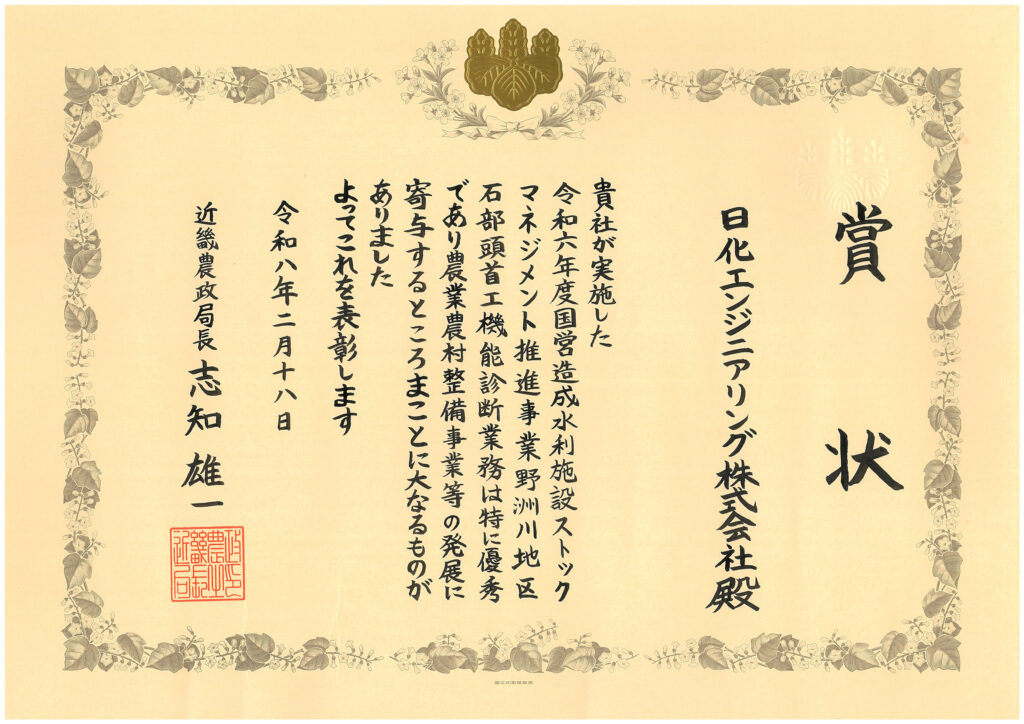 賞状
日化エンジニアリング株式会社殿
貴社が実施した
令和六年度国営造成水利施設ストック
マネジメント推進事業野洲川地区
石部頭首工機能診断業務は特に優秀
であり農業農村整備事業等の発展に
寄与するところまことに大なるものが
ありました
よってこれを表彰します
令和八年二月十八日
近畿農政局長 志知雄一